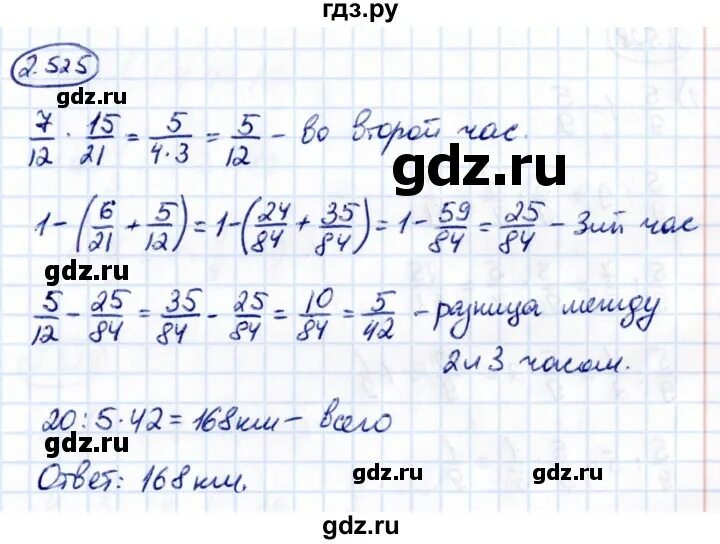 гдз.ру
2.525
gdz.ru
7/12 · 15/21 = 5/(4·3) = 5/12 - во второй час.
gdz.ru
1-(6/21 + 5/12) = 1-(24/84 + 35/84) = 1 - 59/84 = 25/84 - 3ий час
gdz.ru
5/12 - 25/84 = 35/84 - 25/84 = 10/84 = 5/42 - разница между
2 и 3 часом.
20:5·42=168км - всего
Ответ: 168 км.
gdz.ru gdz.ru
gdz.ru